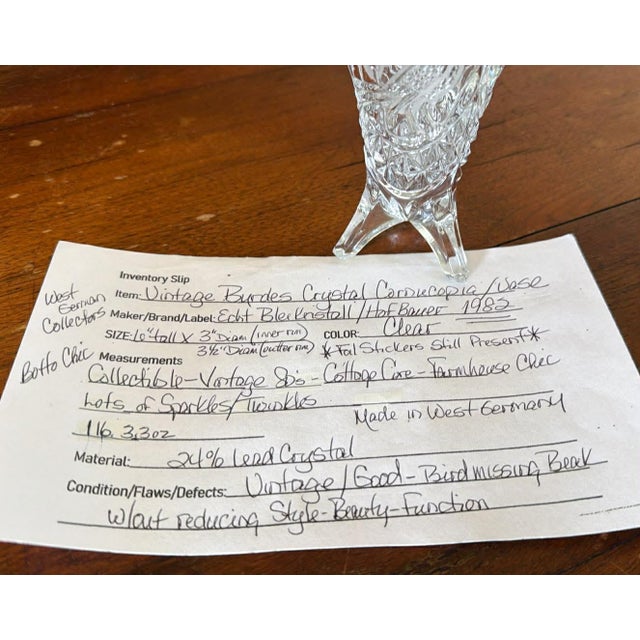 Inventory Slip
West German Collectors
Item: Vintage Byrdes Crystal Cornucopia/Vase
Maker/Brand/Label: Echt Bleikristall/Hofbauer 1982
SIZE: 6" tall X 3" Diam (inner rim) COLOR: Clear
3½" Diam (outter rim) *Foil Stickers Still Present*
Botto Chic
Measurements
Collectible-Vintage 80s-Cottage Core-Farmhouse Chic
Lots of Sparkles/Twinkles
Made in West Germany
1 lb 3.3oz
Material: 24% Lead Crystal
Condition/Flaws/Defects: Vintage/Good-Bird missing Beak
w/out reducing Style-Beauty-Function